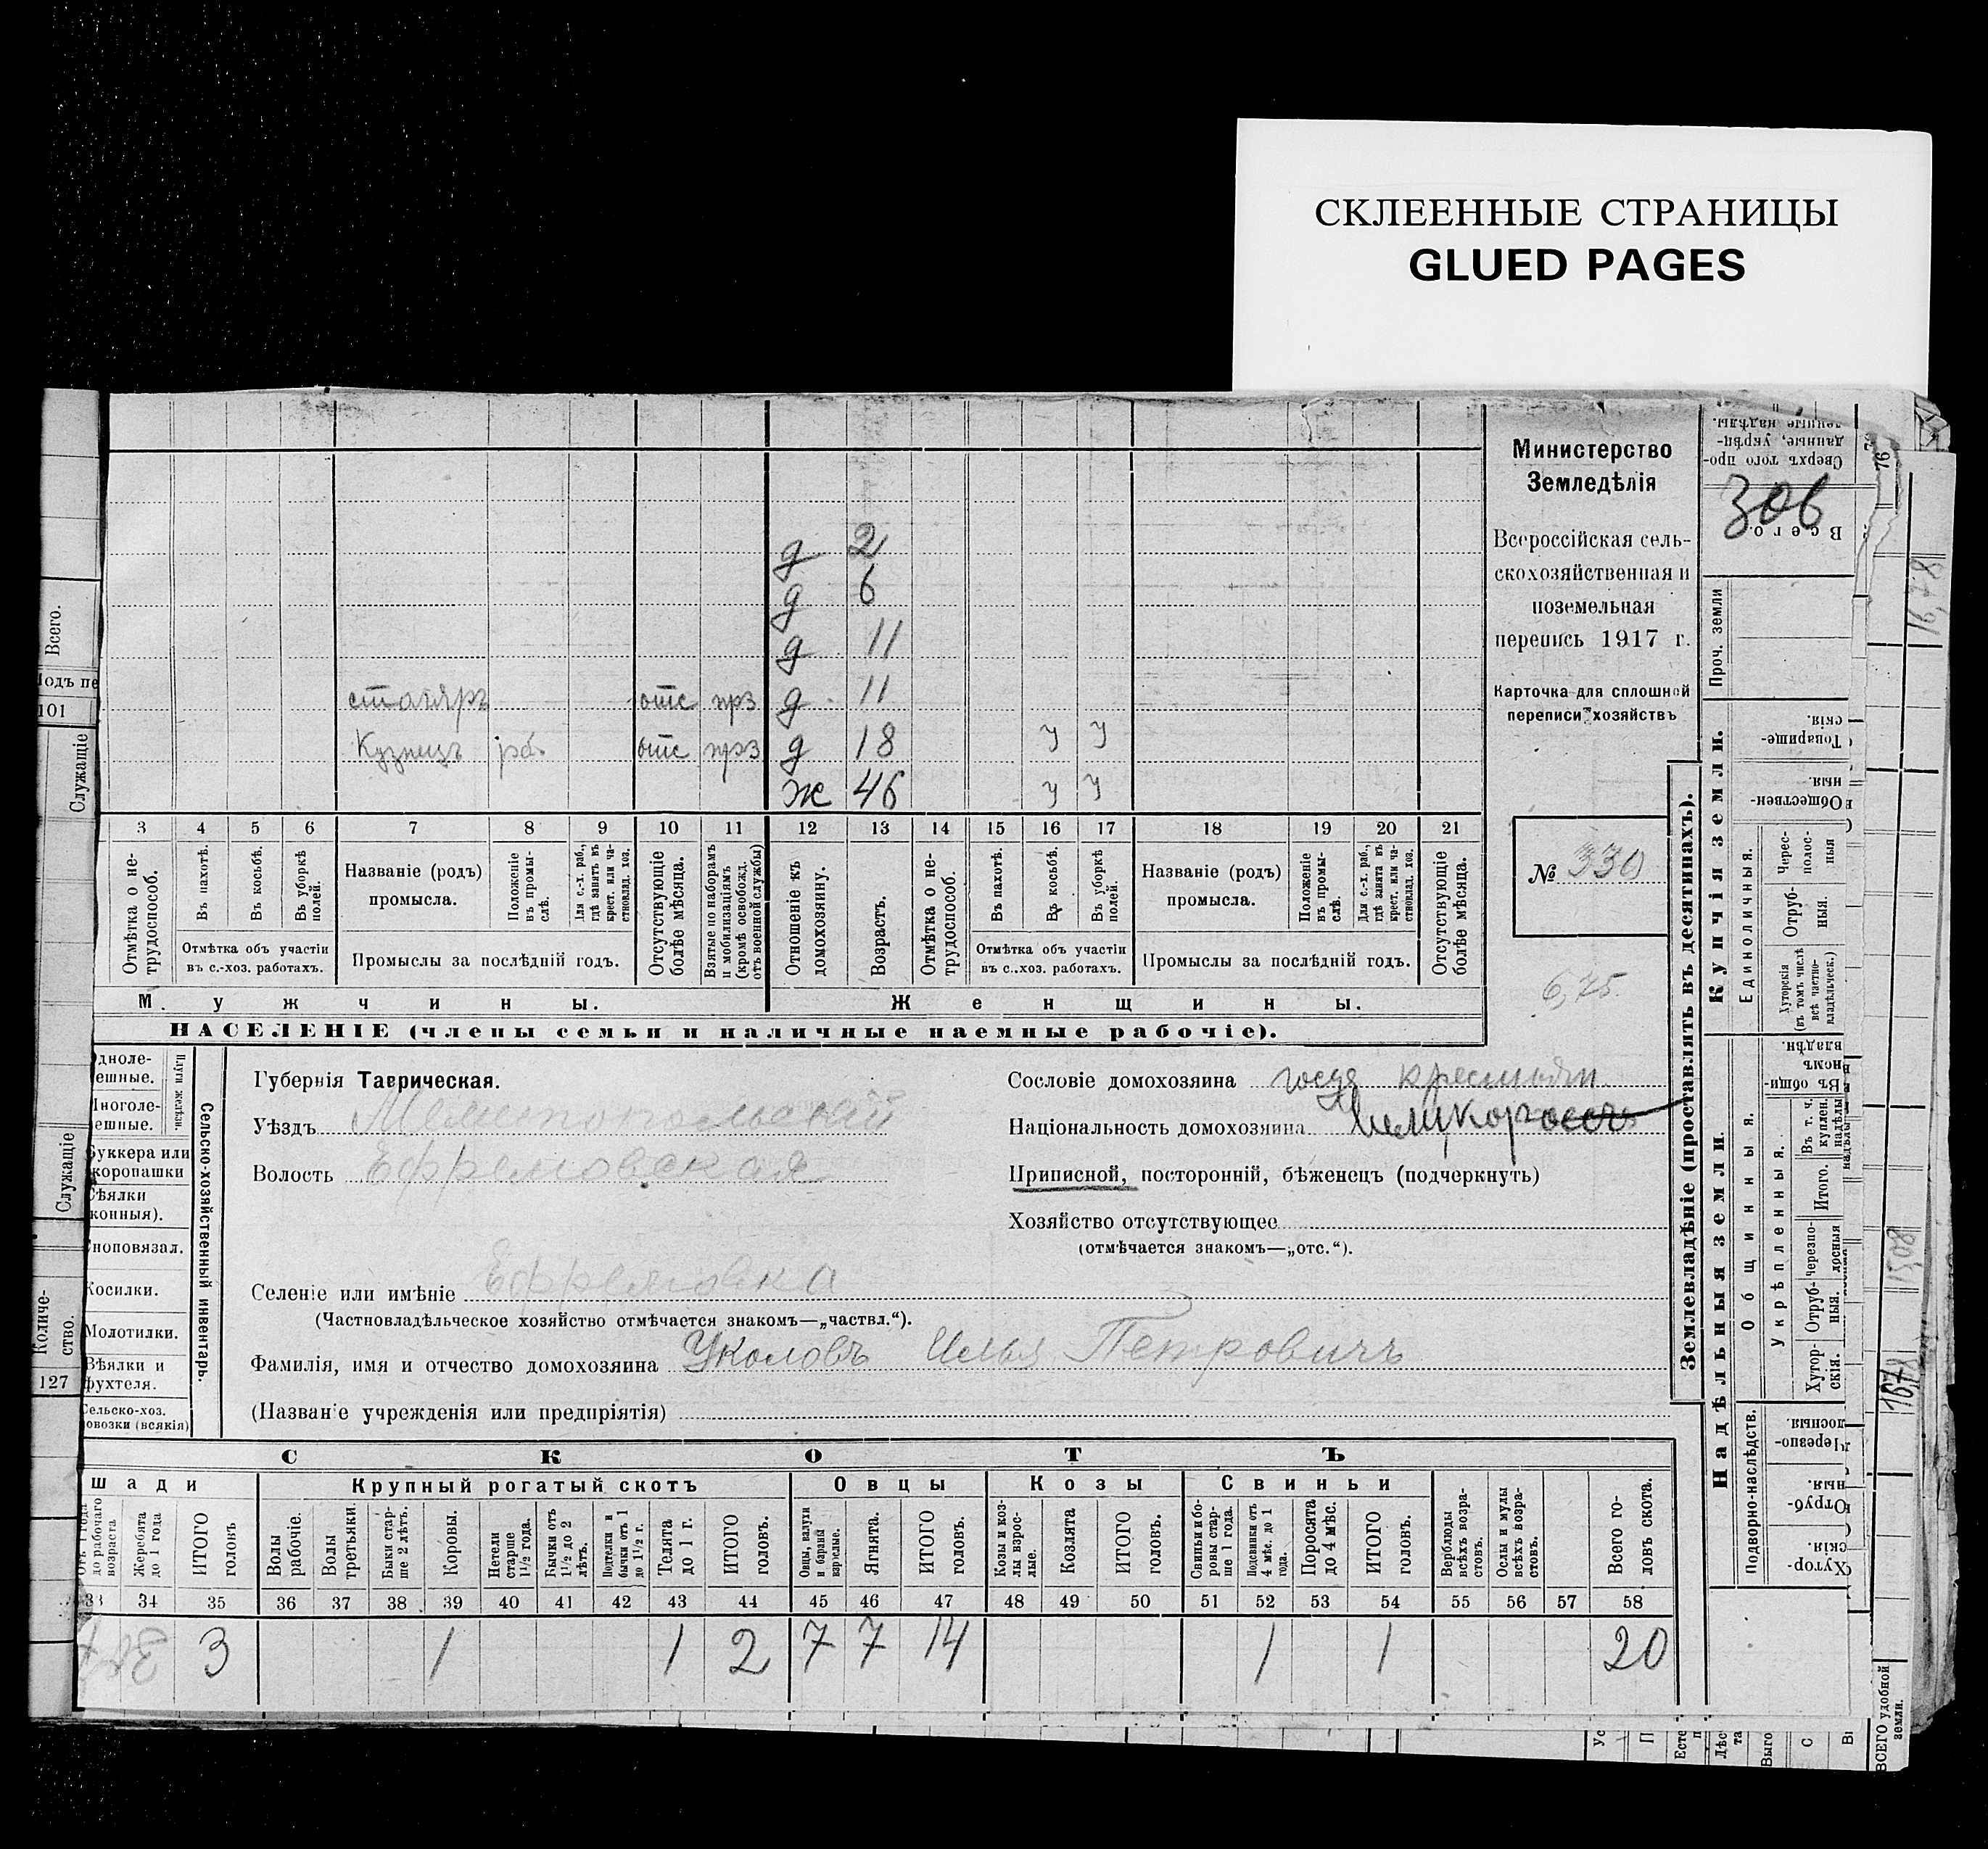 СКЛЕЕННЫЕ СТРАНИЦЫ
GLUED PAGES
Министерство
Земледѣлія
Всероссійская сель-
скохозяйственная и
поземельная
перепись 1917 г.
Карточка для сплошной
переписи хозяйствъ
№ 330
6,75
д 2
д 6
д 11
столяръ отс прз д 11
Кузнецъ рб. отс прз д 18 у у
ж 46 у у
3 4 5 6 7 8 9 10 11 12 13 14 15 16 17 18 19 20 21
Отмѣтка о не-
трудоспособ.
Въ пахотѣ.
Въ косьбѣ.
Въ уборкѣ
полей.
Отмѣтка объ участіи
въ с.-хоз. работахъ.
Названіе (родъ)
промысла.
Положеніе
въ промы-
слѣ.
Для с.-х. раб.,
гдѣ занятъ въ
крест. или ча-
стновлад. хоз.
Промыслы за послѣдній годъ.
Отсутствующіе
болѣе мѣсяца.
Взятые по наборамъ
и мобилизаціямъ
(кромѣ освобожд.
отъ военной службы)
Отношеніе къ
домохозяину.
Возрастъ.
Отмѣтка о не-
трудоспособ.
Въ пахотѣ.
Въ косьбѣ.
Въ уборкѣ
полей.
Отмѣтка объ участіи
въ с..хоз. работахъ.
Названіе (родъ)
промысла.
Положеніе
въ промы-
слѣ.
Для с.-х. раб.,
гдѣ занятъ въ
крест. или ча-
стновлад. хоз.
Промыслы за послѣдній годъ.
Отсутствующіе
болѣе мѣсяца.
Мужчины. Женщины.
НАСЕЛЕНІЕ (члены семьи и наличные наемные рабочіе).
Губернія Таврическая.
Уѣздъ Мелитопольскій
Волость Ефремовская
Селеніе или имѣніе Ефремовка
(Частновладѣльческое хозяйство отмѣчается знакомъ—„частвл.“).
Фамилія, имя и отчество домохозяина Уколовъ Илья Петровичъ
(Названіе учрежденія или предпріятія)
Сословіе домохозяина госуд крестьян
Національность домохозяина Великороссъ
Приписной, посторонній, бѣженецъ (подчеркнуть)
Хозяйство отсутствующее
(отмѣчается знакомъ—„отс.“).
Сельско-хозяйственный инвентарь.
Плуги желѣзн.
Косилки.
Молотилки.
Вѣялки и
Всего.
101
Служащіе
Служащіе
Количе-
ство.
127
СКОТЪ
шади
Крупный рогатый скотъ
Овцы
Козы
Свиньи
до рабочаго
возраста
Жеребята
до 1 года
ИТОГО
головъ
Волы
рабочіе.
Волы
третьяки.
Быки стар-
ше 2 лѣтъ.
Коровы.
Нетели
старше
1½ года.
Бычки отъ
1½ до 2
лѣтъ.
Подтелки и
бычки отъ 1
до 1½ г.
Телята
до 1 г.
ИТОГО
головъ.
Овцы, валухи
и бараны
взрослые.
Ягнята.
ИТОГО
головъ.
Козы и коз-
лы взрос-
лые.
Козлята
ИТОГО
головъ.
Свиньи и бо-
ровы стар-
ше 1 года.
Подсвинки отъ
4 мѣс. до 1
года.
Поросята
до 4 мѣс.
ИТОГО
головъ.
Верблюды
всѣхъ возра-
стовъ.
Ослы и мулы
всѣхъ возра-
стовъ.
Всего го-
ловъ скота.
33 34 35 36 37 38 39 40 41 42 43 44 45 46 47 48 49 50 51 52 53 54 55 56 57 58
3 1 1 2 7 7 14 1 1 20
Землевладѣніе (проставлять въ десятинахъ).
Купчія земли.
Надѣльныя земли.
Сверхъ того про-
данные, укрѣп-
ленные надѣлы.
Всего.
Проч. земли
Товарище-
скія.
Обществен-
ныя
Единоличныя.
Черес-
полос-
ныя
Отруб-
ныя.
Хуторскія
(въ томъ числѣ
всѣ частно-
владѣльческ.)
Общинныя.
Въ общи-
номъ
владѣн.
Укрѣпленныя.
Въ т. ч.
куплен.
надѣлы
Итого.
Черезпо-
лосныя
Отруб-
ныя.
Хутор-
скія.
Подворно-наслѣдств.
Черезпо-
лосныя.
Отруб-
ныя.
Хутор-
скія.
76
16,78
ВСЕГО удобной
земли.